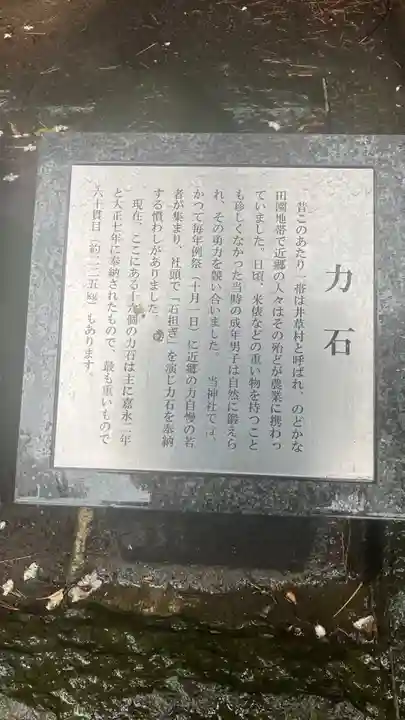 力石
昔このあたり一帯は井草村と呼ばれ、のどかな
田園地帯で近郷の人々はその殆どが農業に携わっ
ていました。日頃、米俵などの重い物を持つこと
も珍しくなかった当時の成年男子は自然に鍛えら
れ、その勇力を競い合いました。 当神社では、
かつて毎年例祭(十月一日)に近郷の力自慢の若
者が集まり、社頭で「石担ぎ」を演じ力石を奉納
する慣わしがありました。
現在、ここにある十 個の力石は主に嘉永二年
と大正七年に奉納されたもので、最も重いもので
六十貫目(約二二五kg)もあります。